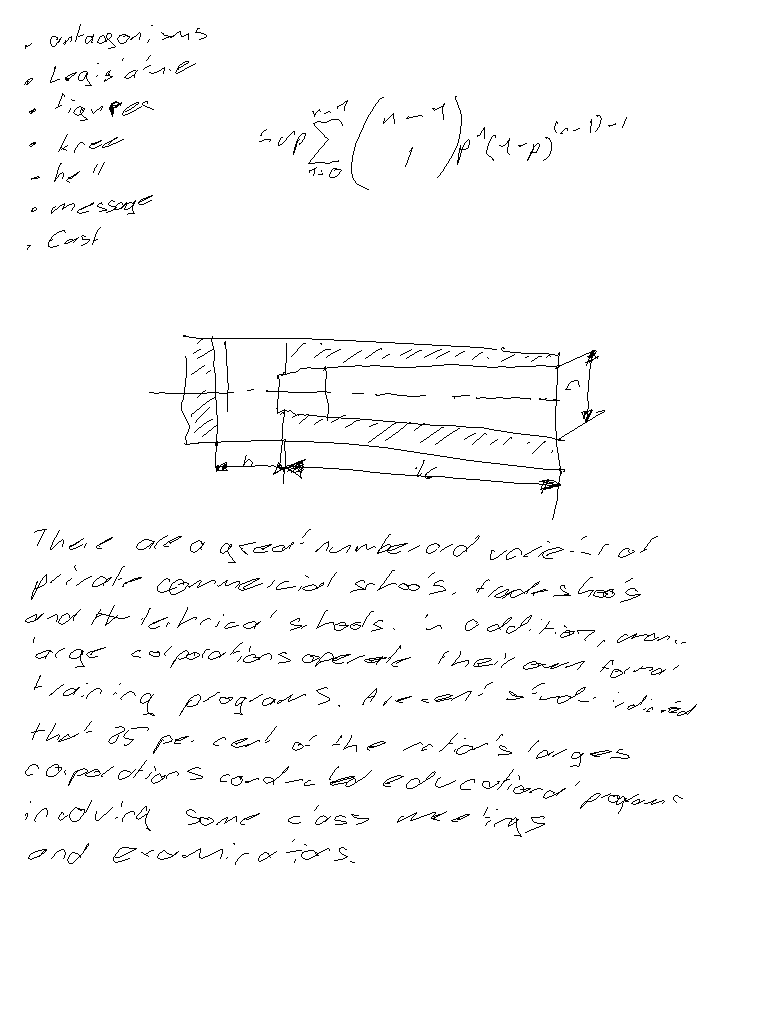 • antagonisms
• Legislative
• figures
• knee
• hell
• message
• East
= np \sum_{1=0}^{n-1} \binom{n-1}{1} p^1 (1-p)^{(n-1)-1}
h
D
There are a great number and varieties of
private commercial schools, trade shools
and technical schools. In addition, many
large corporations operate their own formal
training programs. A recent study indicated
that 85 per cent of the nation's larges
corporations conducted educational programs
involving some class meetings
and examinations.